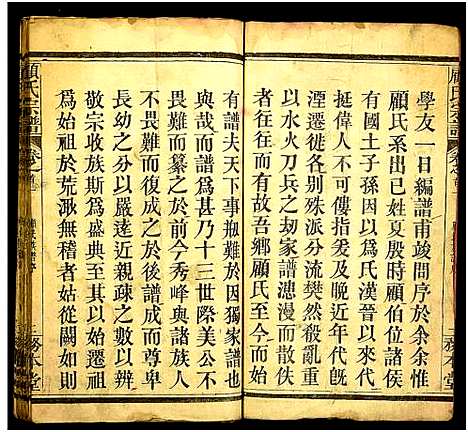 顧氏宗譜
學友一日編譜甫竣問序於余余惟
顧氏系出己姓夏殷時顧伯位諸侯
有國土子孫因以為氏漢晉以來代
挺偉人不可僂指爰及晚近年代既
湮遷徙各別殊派分流樊然殽亂重
以水火刀兵之刧家譜之廢墜無徵
者往往而有故吾鄉顧氏至今而始
有譜夫天下事刱難於因獨家譜也
與哉而甚乃十三世際美公不
畏甚難而纂之於前今秀峰與諸父老
不畏甚難而復成之於後譜成而尊卑
長幼之分以嚴遠近親疎之數以辨
敬宗收族斯為盛矣至如以始遷祖
為始祖於荒渺無稽者姑從闕如則
顧氏宗譜
卷之首
務本堂